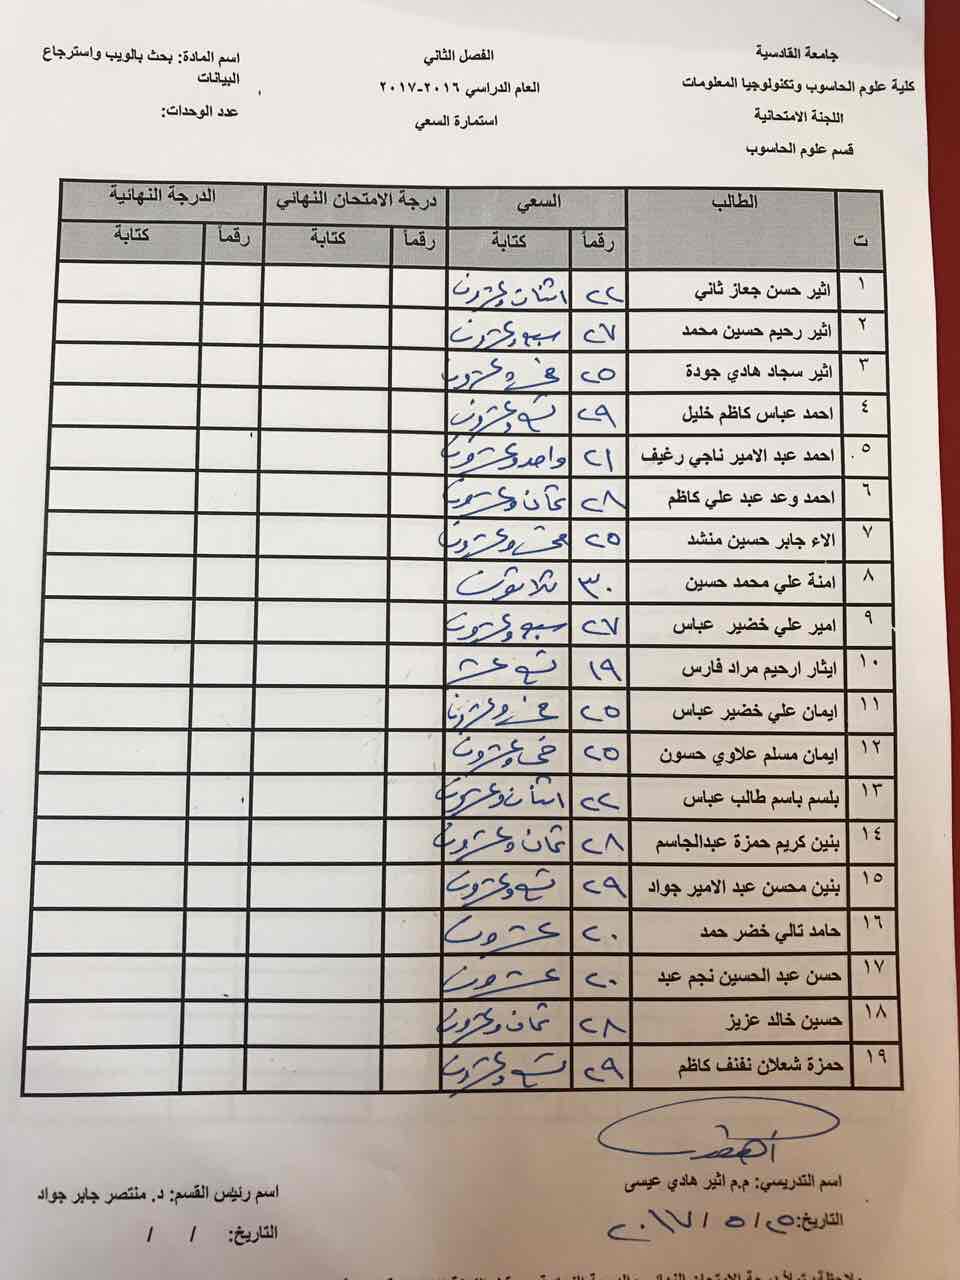 جامعة القادسية
كلية علوم الحاسوب وتكنولوجيا المعلومات
اللجنة الامتحانية
قسم علوم الحاسوب
الفصل الثاني
العام الدراسي ٢٠١٦-٢٠١٧
استمارة السعي
اسم المادة: بحث بالويب واسترجاع
البيانات
عدد الوحدات:
ت الطالب السعي درجة الامتحان النهائي الدرجة النهائية
رقماً كتابة رقماً كتابة رقماً كتابة
١ اثير حسن جعاز ثاني ٢٢ اثنان وعشرون
٢ اثير رحيم حسين محمد ٢٧ سبع وعشرون
٣ اثير سجاد هادي جودة ٢٥ خمس وعشرون
٤ احمد عباس كاظم خليل ٢٩ تسع وعشرون
٥ احمد عبد الامير ناجي رغيف ٢١ واحد وعشرون
٦ احمد وعد عبد علي كاظم ٢٨ ثمان وعشرون
٧ الاء جابر حسين منشد ٢٥ خمس وعشرون
٨ امنة علي محمد حسين ٣٠ ثلاثون
٩ امير علي خضير عباس ٢٧ سبع وعشرون
١٠ ايثار ارحيم مراد فارس ١٩ تسع عشر
١١ ايمان علي خضير عباس ٢٥ خمس وعشرون
١٢ ايمان مسلم علاوي حسون ٢٥ خمس وعشرون
١٣ بلسم باسم طالب عباس ٢٢ اثنان وعشرون
١٤ بنين كريم حمزة عبدالجاسم ٢٨ ثمان وعشرون
١٥ بنين محسن عبد الامير جواد ٢٩ تسع وعشرون
١٦ حامد تالي خضر حمد ٢٠ عشرون
١٧ حسن عبد الحسين نجم عبد ٢٠ عشرون
١٨ حسين خالد عزيز ٢٨ ثمان وعشرون
١٩ حمزة شعلان نفنف كاظم ٢٩ تسع وعشرون
اسم التدريسي: م.م اثير هادي عيسى
التاريخ: ٢٥ / ٥ / ٢٠١٧
اسم رئيس القسم: د. منتصر جابر جواد
التاريخ: / /